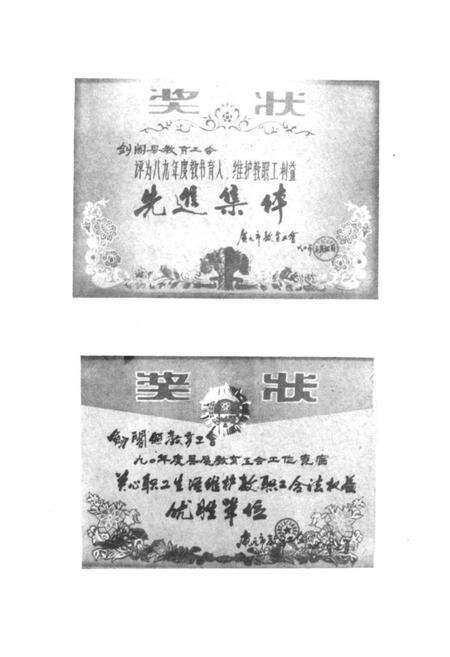 奖 状
剑阁县教育工会
评为八九年度教书育人、维护教职工利益
先進集体
广元市教育工会
奖 状
劍閣縣教育工会
九〇年度县区教育工会工作竞赛
关心职工生活维护教职工合法权益
优胜单位